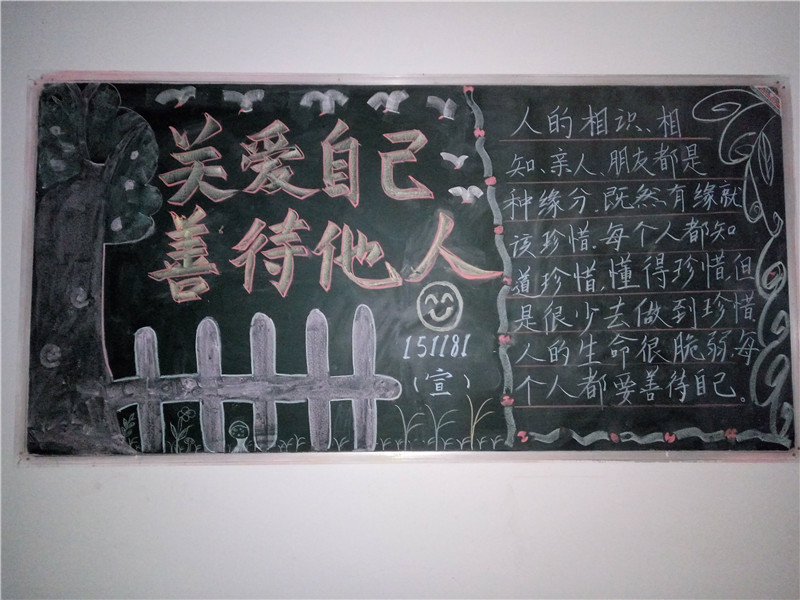 关爱自己
善待他人
151181
（宣）
人的相识、相
知、亲人、朋友都是
种缘分.既然有缘就
该珍惜.每个人都知
道珍惜.懂得珍惜.但
是很少去做到珍惜
人的生命很脆弱.每
个人都要善待自己。